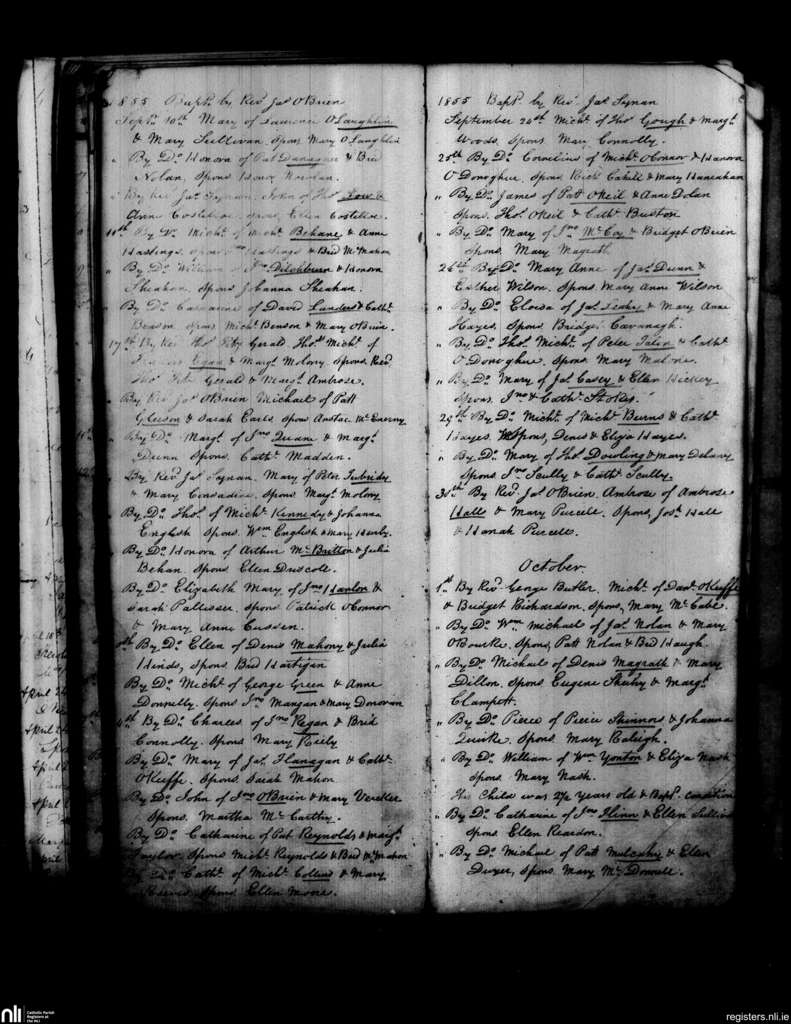 1855 Bapts by Revd Jas O'Brien
Septr 10th Mary of Laurence O'Laughlin
& Mary Sullivan. Spons Mary O'Laughlin
" By Do Honora of Pat Danagher & Brid
Nolan. Spons Honor Nowlan.
" By Rev Jas Synan. John of Thos
Anne Costelloe. Spons Ellen Costelloe.
11th By Do Michl of Michl Behane & Anne
Hastings. Spons Jno Hastings & Brid McMahon
" By Do William of Jno Ditchburn & Honora
Sheahan. Spons Johanna Sheahan.
By Do Catharine of David Landers & Cathe
Benson Spons Michl Benson & Mary O'Brien.
17th By Rev Thos Fitz Gerald Thos Michl of
Egan & Margt Molony Spons Revd
Thos Fitz Gerald & Margt Ambrose.
By Rev Jas O'Brien Michael of Patt
Gleeson & Sarah Earls Spons Anstac McEnerny
By Do Margt of Jno Quane & Margt
Dunn Spons Cathe Madden.
By Revd Jas Synan. Mary of Peter Tubridy
& Mary Considine. Spons Margt Molony
By Do Thos of Michl Kennedy & Johanna
English Spons Wm English & Mary
By Do Honora of Arthur McBritton & Julia
Behan Spons Ellen Driscole.
By Do Elizabeth Mary of Jno Hanlon &
Sarah Pallisser. Spons Patrick O'Connor
& Mary Anne Cussen.
By Do Ellen of Denis Mahony & Julia
Hinds, Spons Brid Hartigan
By Do Michl of George Green & Anne
Donnelly Spons Jno Mangan & Mary Donovan
By Do Charles of Jno Regan & Brid
Connolly. Spons Mary Reily
By Do Mary of Jas Flanagan & Cathe
O'Keeffe. Spons Sarah Mahon
By Do John of Jno O'Brien & Mary Vereker
Spons. Martha McCarthy.
By Do Catharine of Pat Reynolds & Margt
Taylor. Spons Michl Reynolds & Brid McMahon
Cathe of Michl Collins & Mary
Reeves Spons Ellen Moore.
1855 Bapts by Revd Jas Synan
September 24th Michl of Thos Gough & Margt
Woods. Spons Mary Connolly.
25th By Do Cornelius of Michl O'Connor & Honora
O'Donoghue. Spons Richd Cahill & Mary Hanrahan
" By Do James of Patt O'Neil & Anne Dolan
Spons. Thos O'Neil & Cathe Burton
" By Do Mary of Jno McCoy & Bridget O'Brien
Spons. Mary Magrath.
26th By Do Mary Anne of Jas Dunn &
Esther Wilson. Spons. Mary Anne Wilson
" By Do Eloisa of Jas Leake & Mary Anne
Hayes. Spons Bridget Cavanagh.
" By Do Thos Michl of Peter & Cathe
O'Donoghue. Spons Mary Malone.
" By Do Mary of Jas Casey & Ellen Hickey
Spons. Jno & Cathe Stokes.
29th By Do Michl of Michl Burns & Cathe
Hayes. Spons, Denis & Eliza Hayes.
" By Do Mary of Thos Dowling & Mary Delany
Spons Jno Scully & Cathe Scully.
30th By Revd Jas O'Brien. Ambrose of Ambrose
Halls & Mary Purcell. Spons, Josh Hall
& Hanah Purcell.
October.
1st By Revd George Butler. Michl of Davd O'Keeffe
& Bridget Richardson. Spons, Mary McCabe.
" By Do Wm Michael of Jas Nolan & Mary
O'Rourke. Spons, Patt Nolan & Brid Haugh.
" By Do Michael of Denis Magrath & Mary
Dillon. Spons Eugene Sheehy & Margt
Clampett.
" By Do Pierce of Pierce Skinnors & Johanna
Quirke. Spons, Mary Raleigh.
" By Do William of Wm Yonton & Eliza Nash
Spons. Mary Nash.
This Child was 2½ years old & Baptd condition
" By Do Catharine of Jno Flinn & Ellen Sulliv
Spons Ellen Reardon.
" By Do Michael of Patt Mulcahy & Ellen
Dwyer, Spons, Mary McDonnell.
nli
Catholic Parish
Registers at
the NLI
registers.nli.ie